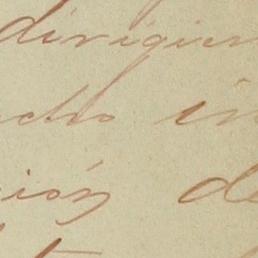 dirigien
ucho in
ción de